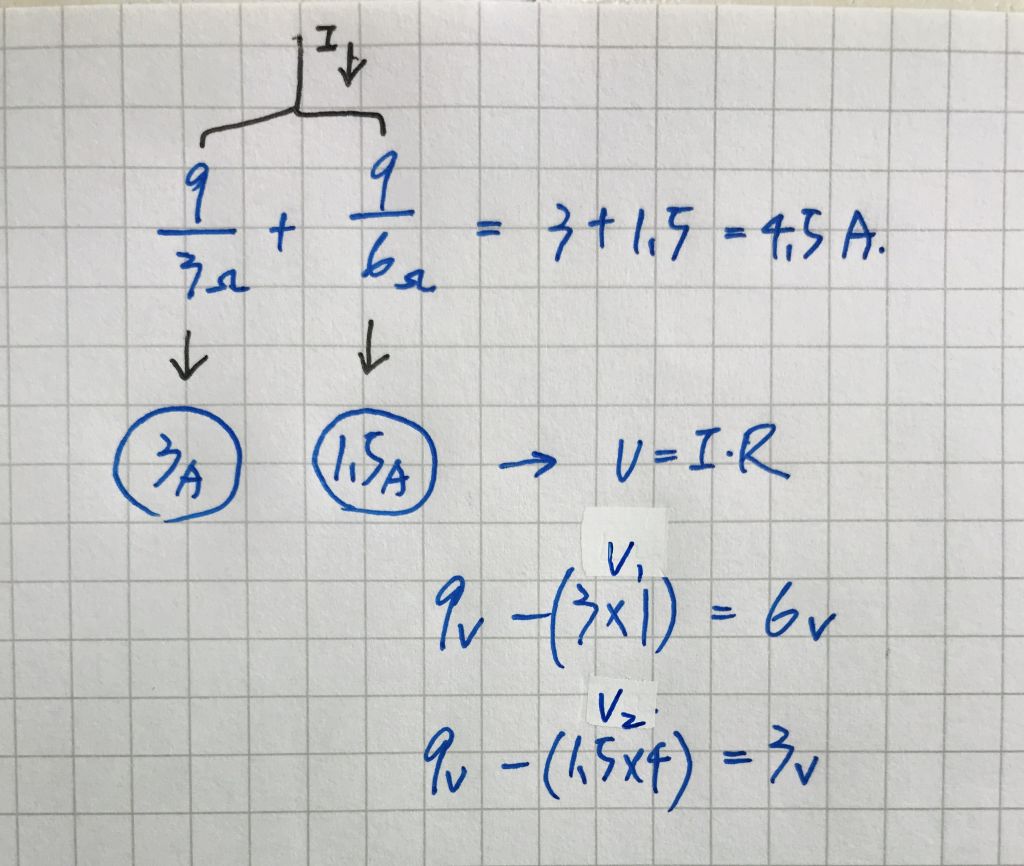 I ↓
9/3Ω + 9/6Ω = 3 + 1.5 = 4.5 A.
↓ ↓
3A 1.5A → V = I·R
V1
9v - (3×1) = 6v
V2.
9v - (1.5×4) = 3v